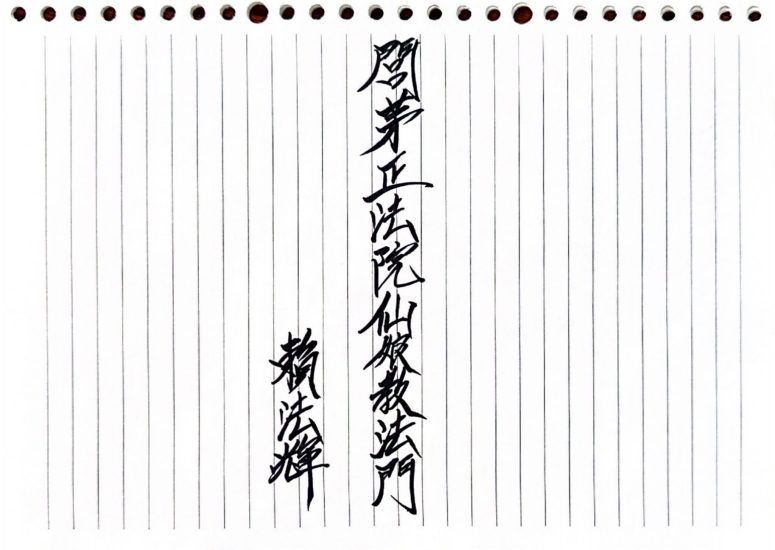 閭茅正法院仙娘教法門
賴法輝